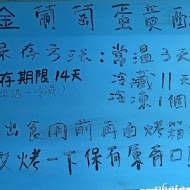 金葡萄蛋黃酥
保存方法:常溫3天
存期限14天
冷藏11天
冷凍1個
出食用前再烤
烤一下保有原有口